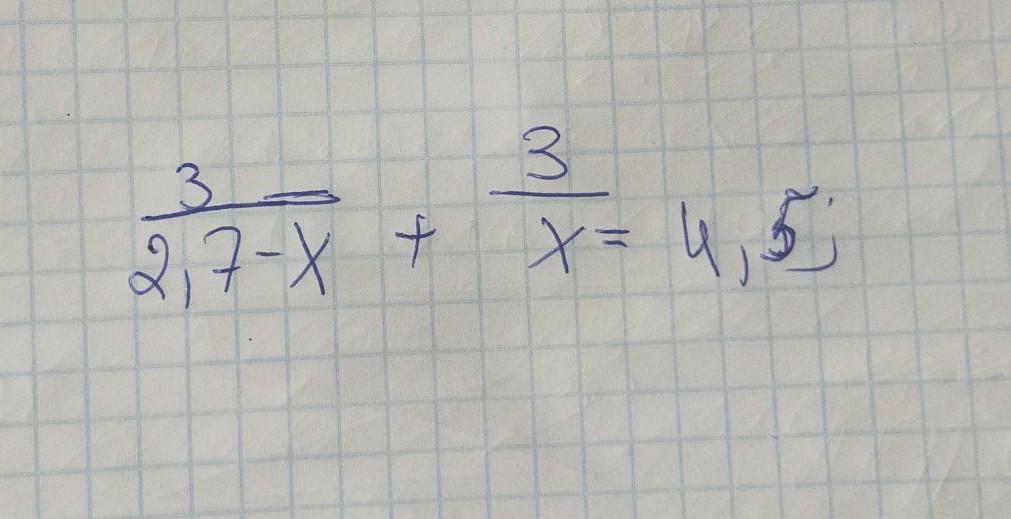 3/(2,7-x) + 3/x = 4,5;